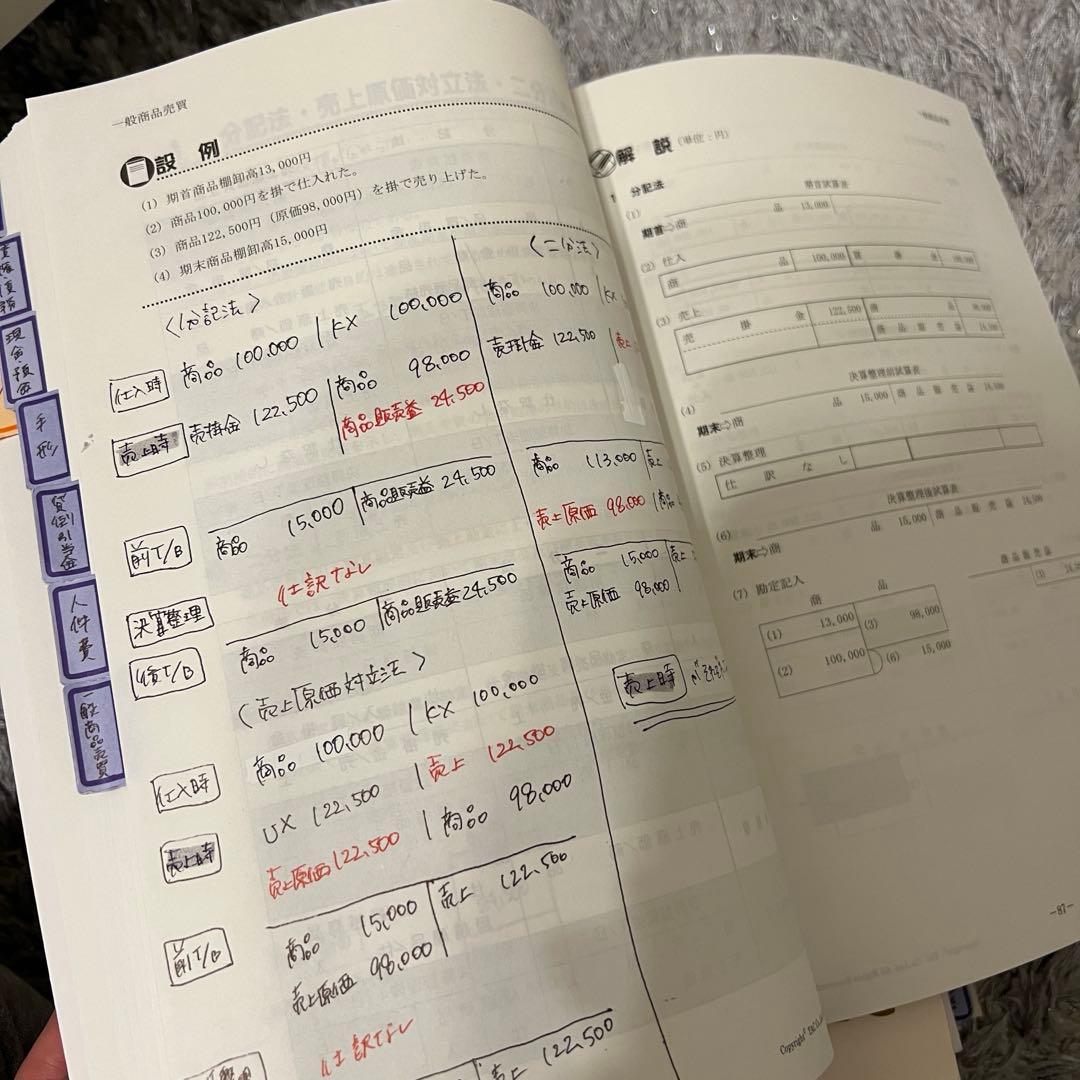 一般商品売買
設例
(1) 期首商品棚卸高13,000円
(2) 商品100,000円を掛で仕入れた。
(3) 商品122,500円（原価98,000円）を掛で売り上げた。
(4) 期末商品棚卸高15,000円
〈分記法〉
仕入時 商品 100,000 KX 100,000
売上時 売掛金 122,500 商品 98,000
商品販売益 24,500
前T/B 商品 15,000 商品販売益 24,500
決算整理 仕訳なし
後T/B 商品 15,000 商品販売益 24,500
〈売上原価対立法〉
仕入時 商品 100,000 KX 100,000
売上時 UX 122,500 売上 122,500
売上原価 122,500 商品 98,000
前T/B 商品 15,000 売上 122,500
売上原価 98,000
仕訳なし
売上 122,500
〈二分法〉
商品 100,000 KX
売掛金 122,500 売上
商品 113,000 売上
売上原価 98,000 商品
商品 15,000 売上
売上原価 98,000
売上時 が
手形
貸倒引当金
人件費
一般商品売買
現金・預金
解説（単位：円）
分記法
期首試算表
(1)
期首⇨商品 13,000
(2) 仕入
商品 100,000 買掛金 100,000
(3) 売上
売掛金 122,500 商品 98,000
商品販売益 24,500
決算整理前試算表
(4)
期末⇨商品 15,000 商品販売益 24,500
(5) 決算整理
仕訳なし
決算整理後試算表
(6)
期末⇨商品 15,000 商品販売益 24,500
(7) 勘定記入
商品
商品販売益
(1) 13,000 (3) 98,000
(2) 100,000 (6) 15,000
-87-